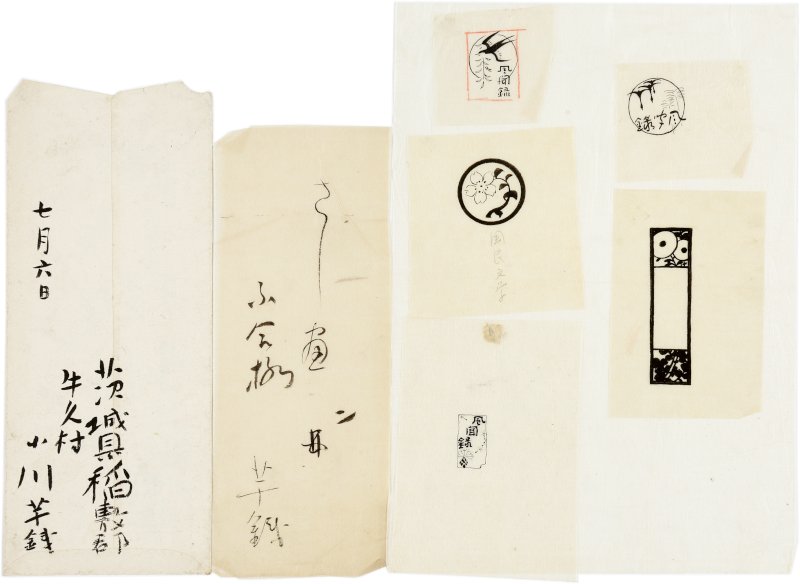 茨城県稲敷郡
牛久村
小川芋銭
七月六日
さし画
芋銭
風聞録
風聞録
国民文学
風聞録